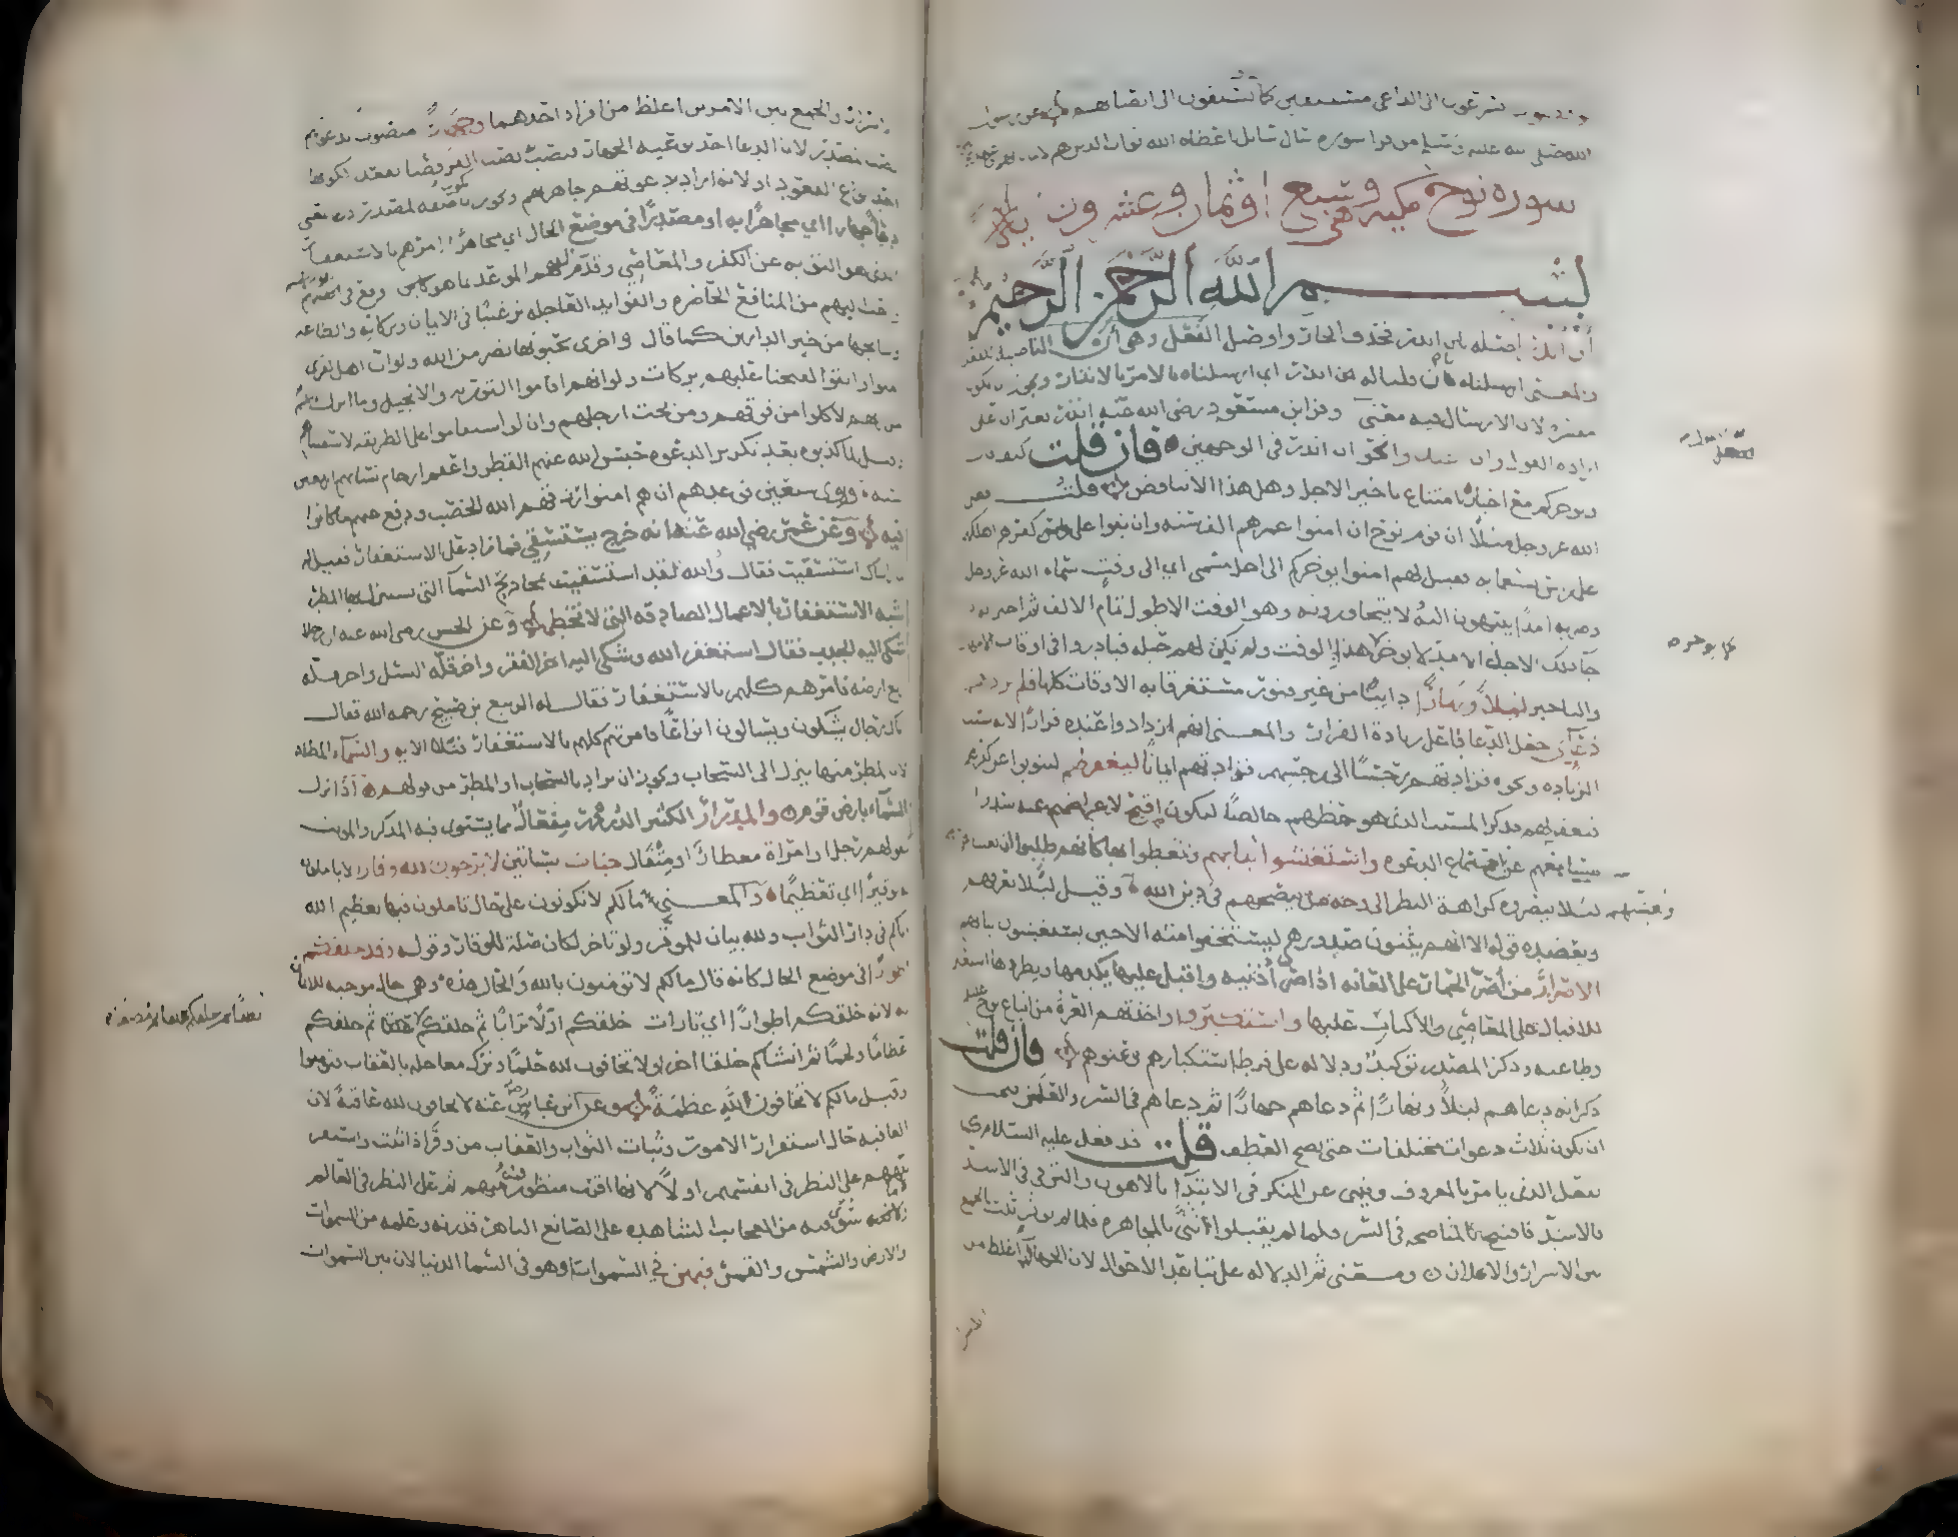 يسرعون الى الداعي مستبقين كما كانوا يستبقون الى انصابهم عن رسول
الله صلى الله عليه وسلم من قرا سورة سال سائل اعطاه الله ثواب الذين هم
سورة نوح مكية وهي سبع او ثمان وعشرون
بسم الله الرحمن الرحيم
أن أنذر اصله بان انذر فحذف الجار واوصل الفعل وهي أن الناصبة للفعل
والمعنى ارسلناه بأن قلنا له انذر اي ارسلناه بالامر بالانذار ويجوز ان تكون
مفسرة لان الارسال فيه معنى وقرا ابن مسعود رضي الله عنه انذر بغير ان على
ارادة القول وان اعبدوا نحو ان انذر في الوجهين فان قلت كيف
ويوخركم مع اخباره بامتناع تاخير الاجل وهل هذا الا تناقض قلت قضى
الله عز وجل مثلا ان قوم نوح ان امنوا عمرهم الف سنة وان بقوا على كفرهم اهلكهم
على راس تسعمايه فقيل لهم امنوا يوخركم الى اجل مسمى اي الى وقت سماه الله عز وجل
وضربه امدا ينتهون اليه لا يتجاوزونه وهو الوقت الاطول تمام الالف ثم اخبر انه
جا ذلك الاجل الامد لا يوخر هذا الوقت ولم تكن لهم حيلة فبادروا في اوقات الامهال
والتاخير ليلا ونهارا دايبا من غير فتور مستغرقا به الاوقات كلها فلم يزدهم
دعآي جعل الدعا فاعل زيادة الفرار والمعنى انهم ازدادوا عنده فرارا لانه سبب
الزيادة ونحوه فزادتهم رجسا الى رجسهم فزادتهم ايمانا لتغفر لهم ليتوبوا عن كفرهم
فتغفر لهم فذكر المسبب الذي هو حظهم خالصا ليكون اقبح لاعراضهم عنه سدوا
مسامعهم عن استماع الدعوة واستغشوا ثيابهم وتغطوا بها كانهم طلبوا ان تغشاهم
لئلا يبصروه كراهة النظر الى وجه من ينصحهم في دين الله وقيل لئلا يعرفهم
ويعضده قوله الا انهم يثنون صدورهم ليستخفوا منه الا حين يستغشون ثيابهم
الاصرار من اصر الحمار على العانة اذا صر اذنيه واقبل عليها يكدمها ويطردها استعير
للاقبال على المعاصي والاكباب عليها واستكبروا واخذتهم العزة من اتباع نوح
وطاعته وذكر المصدر توكيد ودلالة على فرط استكبارهم وعتوهم فان قلت
ذكر انه دعاهم ليلا ونهارا ثم دعاهم جهارا ثم دعاهم في السر والعلن فيجب
ان تكون ثلاث دعوات مختلفات حتى يصح العطف قلت قد فعل عليه السلام كما
يفعل الذي يامر بالمعروف وينهى عن المنكر في الابتدا بالاهون والترقي في الاشد
فالاشد فافتتح بالمناصحة في السر فلما لم يقبلوا ثنى بالمجاهرة فلما لم يوثر ثلث بالجمع
بين الاسرار والاعلان ومعنى ثم الدلالة على تباعد الاحوال لان الجهار اغلظ من
الاسرار والجمع بين الامرين اغلظ من افراد احدهما وجهارا منصوب بدعوتهم
نصب المصدر لان الدعا احد نوعيه الجهار فنصب نصب القرفصا بقعد لكونها
احد انواع القعود او لانه اراد بدعوتهم جاهرتهم ويجوز ان يكون صفة لمصدر دعا بمعنى
دعا جهارا اي مجاهرا به او مصدرا في موضع الحال اي مجاهرا امرهم بالاستغفار
الذي هو التوبة عن الكفر والمعاصي وقدم اليهم الموعد بما هو اوقع في نفوسهم
واحب اليهم من المنافع الحاضرة والفوايد العاجلة ترغيبا في الايمان وبركاته والطاعة
ونتايجها من خير الدارين كما قال واخرى تحبونها نصر من الله ولو ان اهل القرى
امنوا واتقوا لفتحنا عليهم بركات ولو انهم اقاموا التورية والانجيل وما انزل اليهم
من ربهم لاكلوا من فوقهم ومن تحت ارجلهم وان لو استقاموا على الطريقة لاسقيناهم
وقيل لما كذبوه بعد تكرير الدعوة حبس الله عنهم القطر واعقم ارحام نسائهم اربعين
سنة وروي سبعين فوعدهم انهم ان امنوا رزقهم الله الخصب ودفع عنهم ما كانوا
فيه وعن عمر رضي الله عنه انه خرج يستسقي فما زاد على الاستغفار فقيل له
ما رايناك استسقيت فقال والله لقد استسقيت بمجاديح السمآ التي يستنزل بها المطر
شبه الاستغفار بالاعمال الصادقة التي لا تخطي وعن الحسن رضي الله عنه ان رجلا
شكى اليه الجدب فقال استغفر الله وشكى اليه اخر الفقر واخر قلة النسل واخر قلة
ريع ارضه فامرهم كلهم بالاستغفار فقال له الربيع بن صبيح رحمه الله تعالى
اتاك رجال يشكون ويسالون انواعا فامرتهم كلهم بالاستغفار فتلا الاية والسمآء المظلة
لان المطر منها ينزل الى السحاب ويجوز ان يراد بالسحاب او المطر من قولهم اذا نزل
السماء بارض قوم والمدرار الكثير الدرور مفعال مما يستوي فيه المذكر والمونث
كقولهم رجل او امراة معطار او متفال جنات بساتين لا ترجون لله وقارا لا تاملون له
توقيرا اي تعظيما والمعنى ما لكم لا تكونون على حال تاملون فيها تعظيم الله
اياكم في دار الثواب ولله بيان للموقر ولو تاخر لكان صلة للوقار وقوله وقد خلقكم
اطوارا في موضع الحال كانه قال ما لكم لا تومنون بالله والحال هذه وهي حال موجبة للايمان
به لانه خلقكم اطوارا اي تارات خلقكم اولا ترابا ثم خلقكم نطفا ثم خلقكم
عظاما ولحما ثم انشاكم خلقا اخر او لا تخافون لله حلما وترك معاجلة بالعقاب فتومنوا
وقيل ما لكم لا تخافون لله عظمة وعن ابن عباس رضي الله عنه لا تخافون لله عاقبة لان
العاقبة حال استقرار الامور وثبات الثواب والعقاب من وقر اذا ثبت واستقر
نبههم على النظر في انفسهم اولا لانها اقرب منظور فيه منهم ثم على النظر في العالم
وما سوى فيه من العجايب الشاهدة على الصانع الباهر قدرته وعلمه من السموات
والارض والشمس والقمر فيهن في السموات وهو في السما الدنيا لان بين السموات